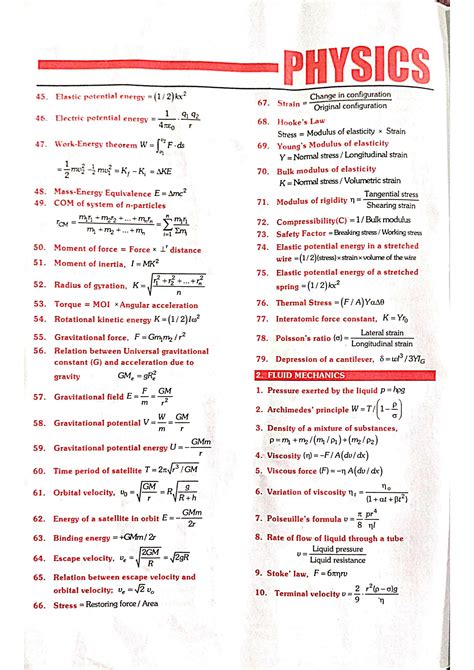 PHYSICS
45. Elastic potential energy = (1/2) kx²
46. Electric potential energy = 1/4πε₀ · q₁q₂/r
47. Work-Energy theorem W = ∫ F · ds
= 1/2 mv₂² − 1/2 mv₁² = K_f − K_i = ΔKE
48. Mass-Energy Equivalence E = Δmc²
49. COM of system of n-particles
r_CM = (m₁r₁ + m₂r₂ + ... + mₙrₙ)/(m₁ + m₂ + ... + mₙ) = Σmᵢrᵢ/Σmᵢ
50. Moment of force = Force × ⊥ʳ distance
51. Moment of inertia, I = MK²
52. Radius of gyration, K = √((r₁² + r₂² + ... + rₙ²)/n)
53. Torque = MOI × Angular acceleration
54. Rotational kinetic energy K = (1/2) Iω²
55. Gravitational force, F = Gm₁m₂/r²
56. Relation between Universal gravitational
constant (G) and acceleration due to
gravity GMₑ = gRₑ²
57. Gravitational field E = F/m = GM/r²
58. Gravitational potential V = W/m = − GM/r
59. Gravitational potential energy U = − GMm/r
60. Time period of satellite T = 2π√(r³/GM)
61. Orbital velocity, v₀ = √(GM/r) = R√(g/(R+h))
62. Energy of a satellite in orbit E = − GMm/2r
63. Binding energy = +GMm/2r
64. Escape velocity, vₑ = √(2GM/R) = √(2gR)
65. Relation between escape velocity and
orbital velocity; vₑ = √2 v₀
66. Stress = Restoring force / Area
67. Strain = Change in configuration/Original configuration
68. Hooke's Law
Stress = Modulus of elasticity × Strain
69. Young's Modulus of elasticity
Y = Normal stress / Longitudinal strain
70. Bulk modulus of elasticity
K = Normal stress / Volumetric strain
71. Modulus of rigidity η = Tangential stress/Shearing strain
72. Compressibility(C) = 1 / Bulk modulus
73. Safety Factor = Breaking stress / Working stress
74. Elastic potential energy in a stretched
wire = (1/2)(stress) × strain × volume of the wire
75. Elastic potential energy of a stretched
spring = (1/2) kx²
76. Thermal Stress = (F/A) YαΔθ
77. Interatomic force constant, K = Yr₀
78. Poisson's ratio (σ) = Lateral strain/Longitudinal strain
79. Depression of a cantilever, δ = ωl³/3YI_G
2. FLUID MECHANICS
1. Pressure exerted by the liquid p = hρg
2. Archimedes' principle W = T/(1 − ρ/σ)
3. Density of a mixture of substances,
ρ = m₁ + m₂/(m₁/ρ₁) + (m₂/ρ₂)
4. Viscosity (η) = −F/A(dv/dx)
5. Viscous force (F) = −η A(dv/dx)
6. Variation of viscosity ηₜ = η₀/(1 + αt + βt²)
7. Poiseuille's formula v = π/8 pr⁴/ηl
8. Rate of flow of liquid through a tube
v = Liquid pressure/Liquid resistance
9. Stoke' law, F = 6πηrv
10. Terminal velocity v = 2/9 r²(ρ−σ)g/η